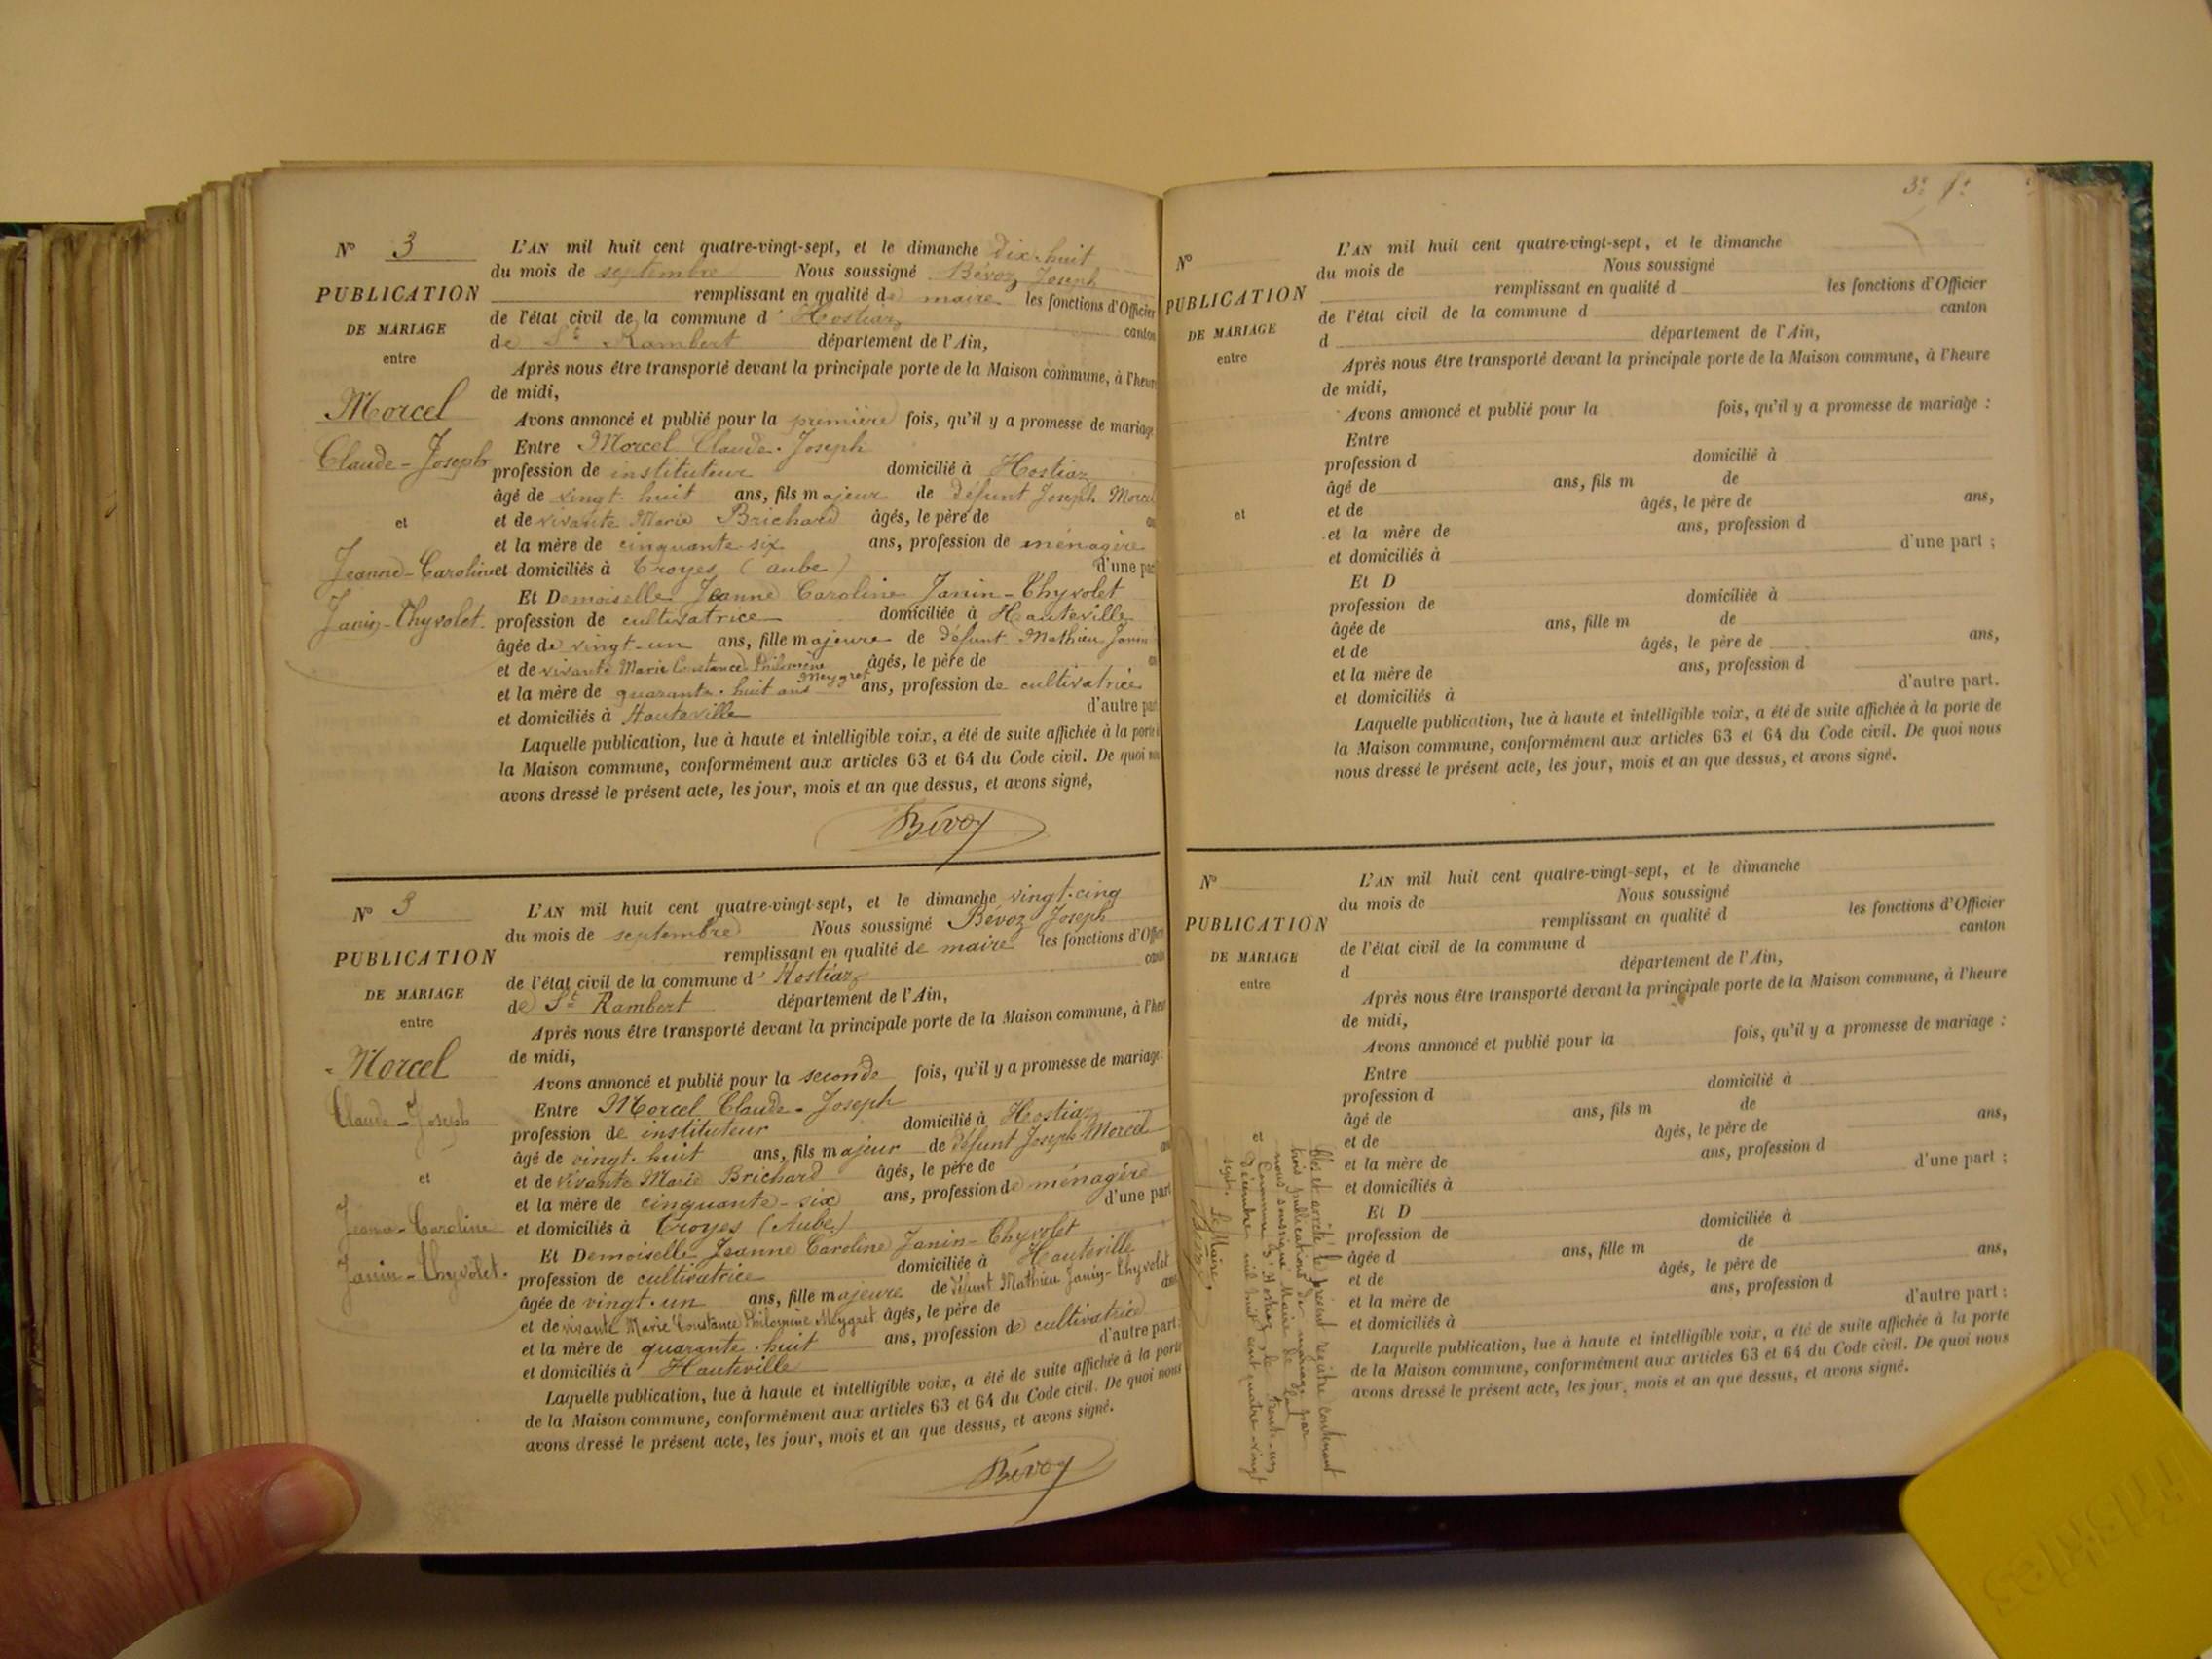 N° 3
PUBLICATION
DE MARIAGE
entre
Morcel
Claude-Joseph
et
Jeanne-Caroline
Janin-Chyvolet.
L'AN mil huit cent quatre-vingt-sept, et le dimanche dix-huit
du mois de septembre Nous soussigné Bévoz Joseph
remplissant en qualité de maire les fonctions d'Officier
de l'état civil de la commune d'Hostiaz canton
de St Rambert département de l'Ain,
Après nous être transporté devant la principale porte de la Maison commune, à l'heure
de midi,
Avons annoncé et publié pour la première fois, qu'il y a promesse de mariage
Entre Morcel Claude-Joseph
profession de instituteur domicilié à Hostiaz
âgé de vingt-huit ans, fils majeur de défunt Joseph Morcel
et de vivante Marie Brichard âgés, le père de
et la mère de cinquante-six ans, profession de ménagère
et domiciliés à Troyes (aube) d'une part
Et Demoiselle Jeanne Caroline Janin-Chyvolet
profession de cultivatrice domiciliée à Hauteville
âgée de vingt-un ans, fille majeure de défunt Mathieu Janin
et de vivante Marie Constance Philomène Meygret âgés, le père de
et la mère de quarante-huit ans ans, profession de cultivatrice
et domiciliés à Hauteville d'autre part
Laquelle publication, lue à haute et intelligible voix, a été de suite affichée à la porte
la Maison commune, conformément aux articles 63 et 64 du Code civil. De quoi nous
avons dressé le présent acte, les jour, mois et an que dessus, et avons signé,
Bévoz
N° 3
PUBLICATION
DE MARIAGE
entre
Morcel
Claude-Joseph
et
Jeanne-Caroline
Janin-Chyvolet.
L'AN mil huit cent quatre-vingt-sept, et le dimanche vingt-cinq
du mois de septembre Nous soussigné Bévoz Joseph
remplissant en qualité de maire les fonctions d'Officier
de l'état civil de la commune d'Hostiaz canton
de St Rambert département de l'Ain,
Après nous être transporté devant la principale porte de la Maison commune, à l'heure
de midi,
Avons annoncé et publié pour la seconde fois, qu'il y a promesse de mariage:
Entre Morcel Claude-Joseph
profession de instituteur domicilié à Hostiaz
âgé de vingt-huit ans, fils majeur de défunt Joseph Morcel
et de vivante Marie Brichard âgés, le père de
et la mère de cinquante-six ans, profession de ménagère
et domiciliés à Troyes (Aube) d'une part
Et Demoiselle Jeanne Caroline Janin-Chyvolet
profession de cultivatrice domiciliée à Hauteville
âgée de vingt-un ans, fille majeure de défunt Mathieu Janin-Chyvolet
et de vivante Marie Constance Philomène Meygret âgés, le père de ans
et la mère de quarante-huit ans, profession de cultivatrice
et domiciliés à Hauteville d'autre part:
Laquelle publication, lue à haute et intelligible voix, a été de suite affichée à la porte
de la Maison commune, conformément aux articles 63 et 64 du Code civil. De quoi nous
avons dressé le présent acte, les jour, mois et an que dessus, et avons signé.
Bévoz
N°
PUBLICATION
DE MARIAGE
entre
et
L'AN mil huit cent quatre-vingt-sept, et le dimanche
du mois de Nous soussigné
remplissant en qualité d les fonctions d'Officier
de l'état civil de la commune d canton
d département de l'Ain,
Après nous être transporté devant la principale porte de la Maison commune, à l'heure
de midi,
Avons annoncé et publié pour la fois, qu'il y a promesse de mariage :
Entre
profession d domicilié à
âgé de ans, fils m de
et de âgés, le père de ans,
et la mère de ans, profession d
et domiciliés à d'une part ;
Et D
profession de domiciliée à
âgée de ans, fille m de
et de âgés, le père de ans,
et la mère de ans, profession d
et domiciliés à d'autre part.
Laquelle publication, lue à haute et intelligible voix, a été de suite affichée à la porte de
la Maison commune, conformément aux articles 63 et 64 du Code civil. De quoi nous
nous dressé le présent acte, les jour, mois et an que dessus, et avons signé.
N°
PUBLICATION
DE MARIAGE
entre
et
L'AN mil huit cent quatre-vingt-sept, et le dimanche
du mois de Nous soussigné
remplissant en qualité d les fonctions d'Officier
de l'état civil de la commune d canton
d département de l'Ain,
Après nous être transporté devant la principale porte de la Maison commune, à l'heure
de midi,
Avons annoncé et publié pour la fois, qu'il y a promesse de mariage :
Entre
profession d domicilié à
âgé de ans, fils m de
et de âgés, le père de ans,
et la mère de ans, profession d
et domiciliés à d'une part ;
Et D
profession de domiciliée à
âgée d ans, fille m de
et de âgés, le père de ans,
et la mère de ans, profession d
et domiciliés à d'autre part ;
Laquelle publication, lue à haute et intelligible voix, a été de suite affichée à la porte
de la Maison commune, conformément aux articles 63 et 64 du Code civil. De quoi nous
avons dressé le présent acte, les jour, mois et an que dessus, et avons signé.
Clos et arrêté le présent registre contenant
trois publications de mariage par
nous soussigné Maire de la
Commune d'Hostiaz, le trente-un
décembre mil huit cent quatre-vingt
sept.
Le Maire,
Bévoz